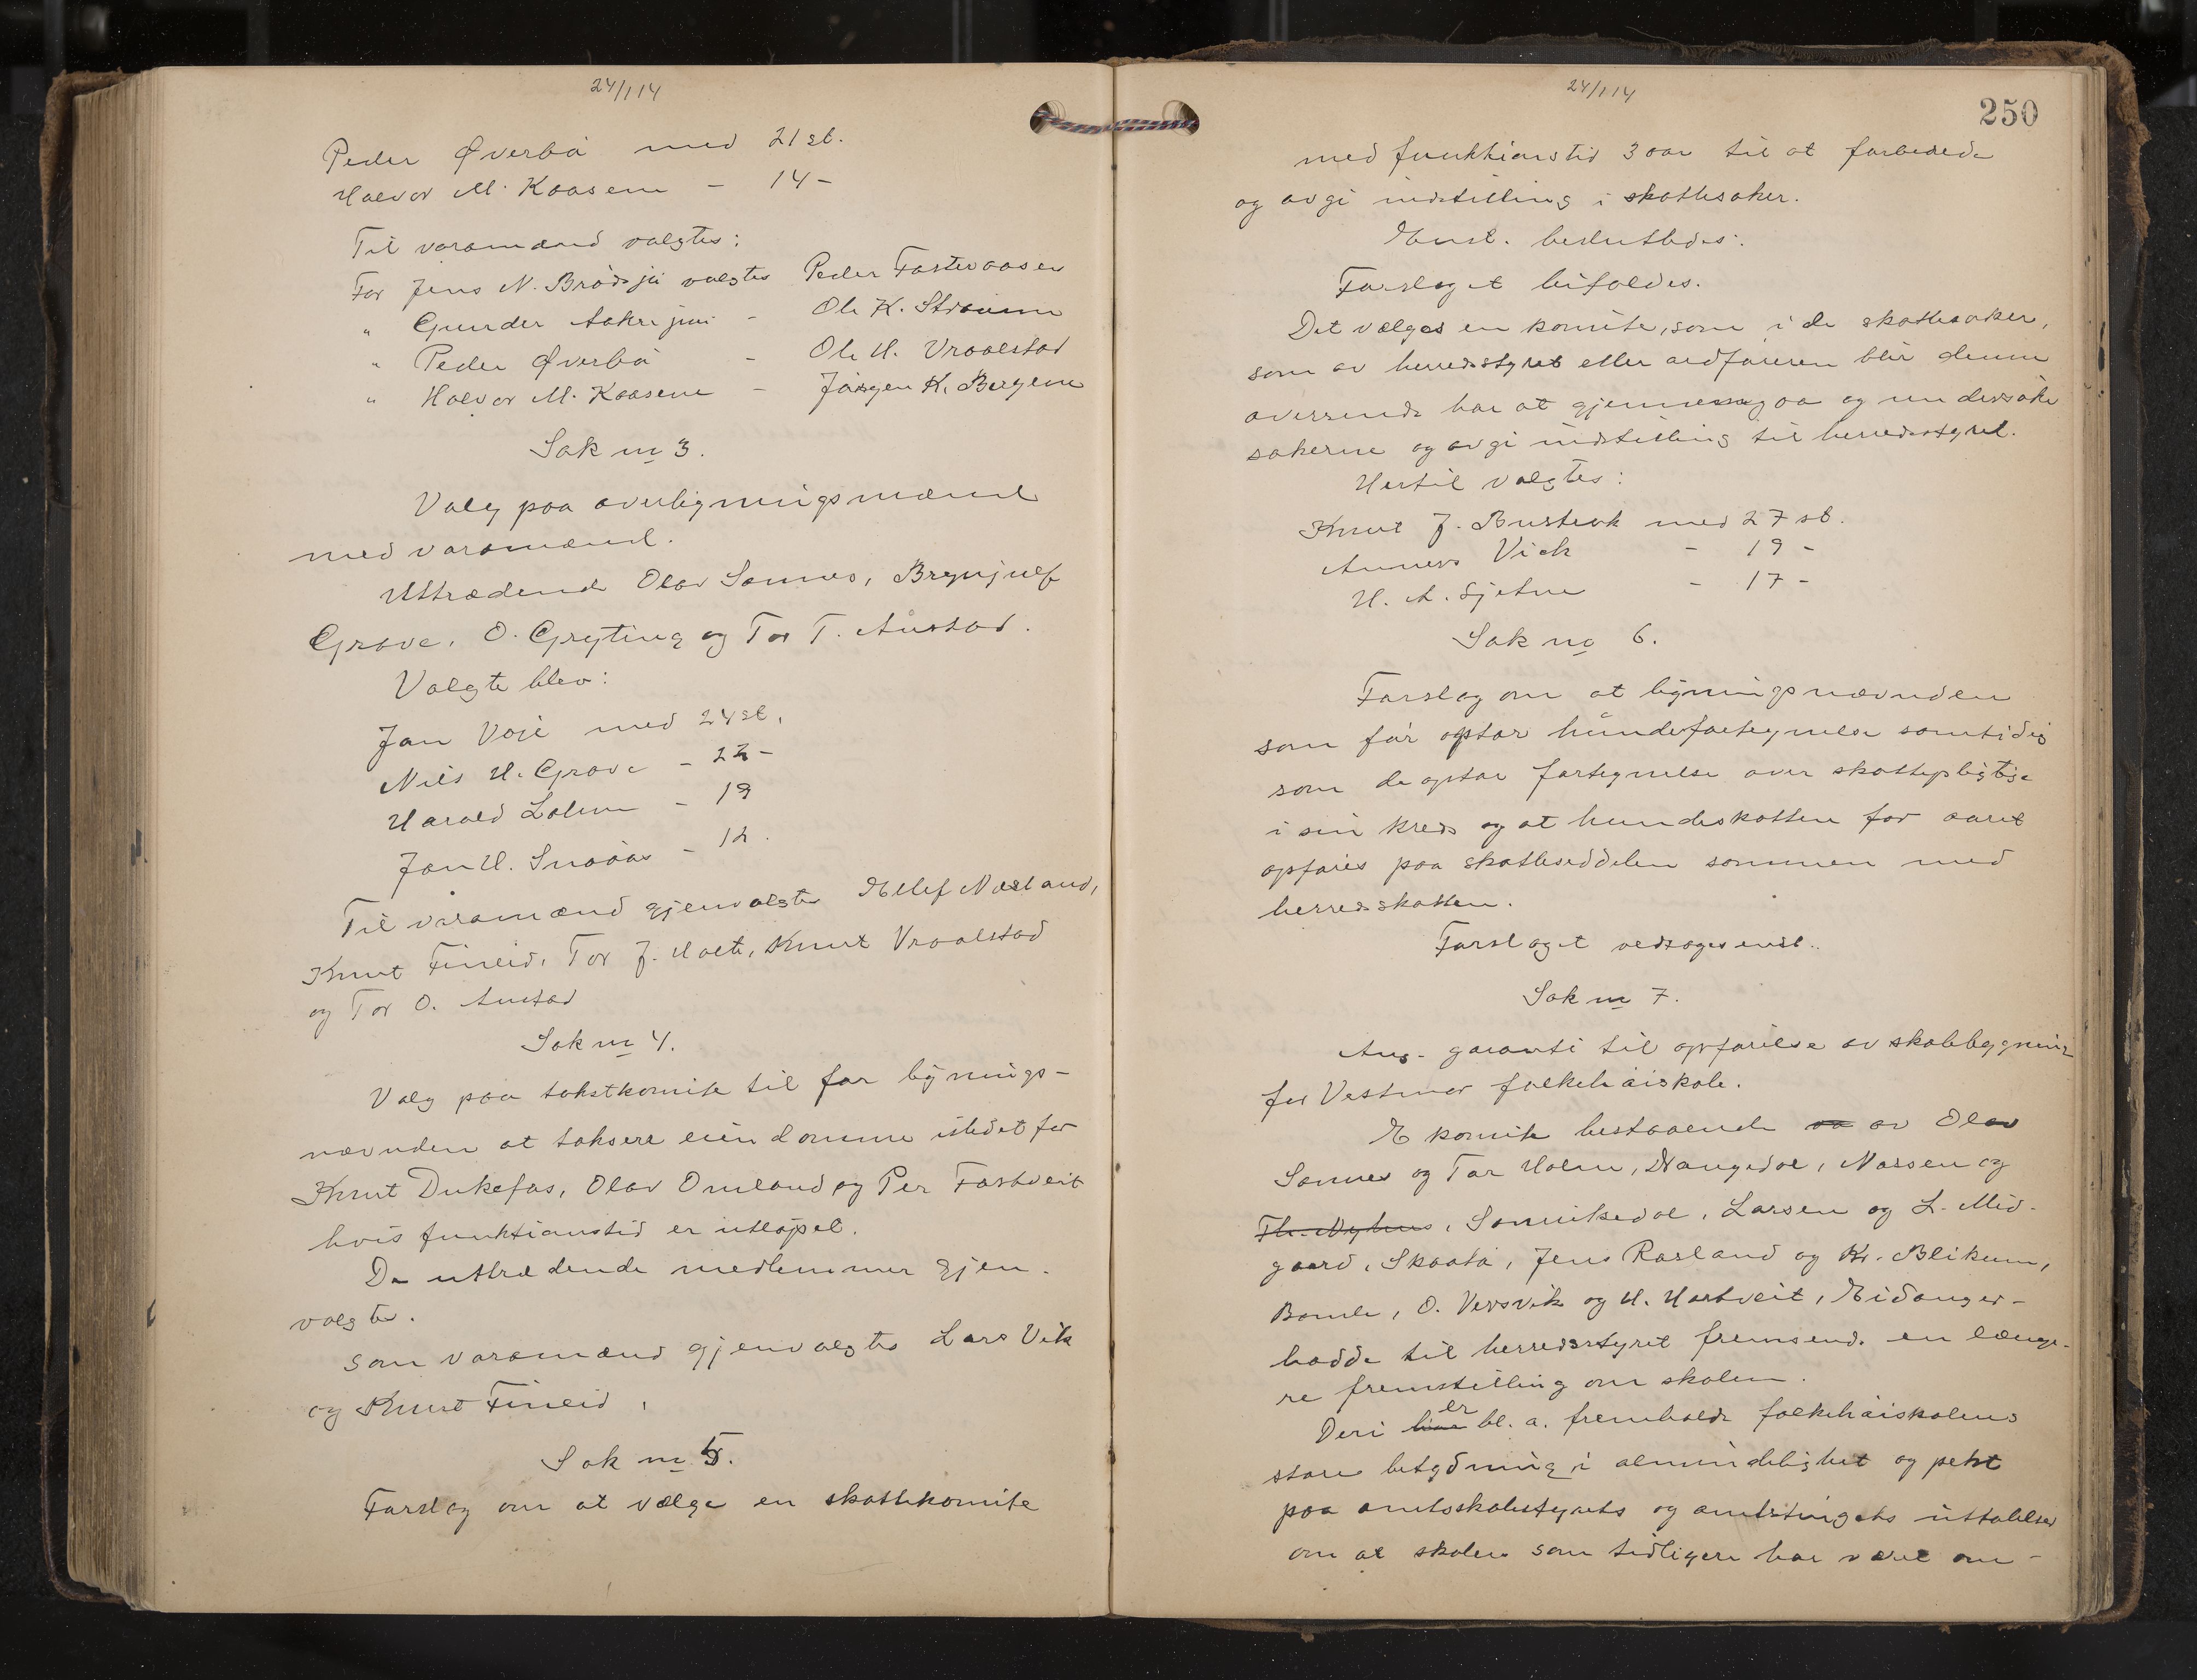 24/1 14
Peder Øverbø med 21 st.
Halvor M. Kaasene - 14 -
Til varamænd valgtes:
For Jens N. Brødsjø valgtes Peder Fostvaasen
" Gunder Aakre jun. - Ole K. Straume
" Peder Øverbø - Ole H. Vraalstad
" Halvor M. Kaasene - Jørgen K. Bergene
Sak no 3.
Valg paa overligningsmænd
med varamænd.
Uttrædende Olav Sannes, Brynjulf
Grave, O. Gryting og Tor T. Austad.
Valgte blev:
Jan Voje med 24 st.
Nils H. Grave - 22 -
Harald Lohne - 19
Jan H. Snøaas - 12.
Til varamænd gjenvalgtes Ellef Næsland,
Knut Fineid, Tor J. Holte, Knut Vraalstad
og Tor O. Austad
Sak no 4.
Valg paa takstkomite til for lignings-
nævnden at taksere eiendomme istedet for
Knut Dukefos, Olav Omland og Per Fostveit
hvis funktionstid er utløpet.
De uttrædende medlemmer gjen-
valgtes.
Som varamænd gjenvalgtes Lars Vik
og Knut Fineid.
Sak no 5.
Forslag om at vælge en skattekomite
24/1 14
250
med funktionstid 3 aar til at forberede
og avgi indstilling i skattesaker.
Enst. besluttedes:
Forslaget bifaldes.
Det vælges en komite, som i de skattesaker,
som av herredsstyret eller ordføreren blir denne
oversendt har at gjennemgaa og undersøke
sakerne og avgi indstilling til herredsstyret.
Hertil valgtes:
Knut J. Bustrak med 27 st.
Anners Vick - 19 -
H. A. Sjetne - 17 -
Sak no 6.
Forslag om at ligningsnævnden
som før optar hundefortegnelse samtidig
som de optar fortegnelse over skattepligtige
i sin kreds og at hundeskatten for aaret
opføres paa skatteseddelen sammen med
herredsskatten.
Forslaget vedtoges enst.
Sak no 7.
Ang. garanti til opførelse av skolebygning
for Vestmar folkehøiskole.
E komite bestaaende av Olav
Sannes og Tor Holm, Drangedal, Narsen og
Th. Nyhus, Sannikedal, Larsen og L. Mid-
gaard, Skaatø, Jens Rørland og Kr. Blikum,
Bamle, O. Versvik og H. Hartveit, Eidanger -
hadde til herredsstyret fremsendt en længe-
re fremstilling om skolen.
Deri er bl. a. fremholdt folkehøiskolens
store betydning i almindelighet og pekt
paa amtsskolestyrets og amtstingets uttalelser
om at skolen som tidligere har været om-